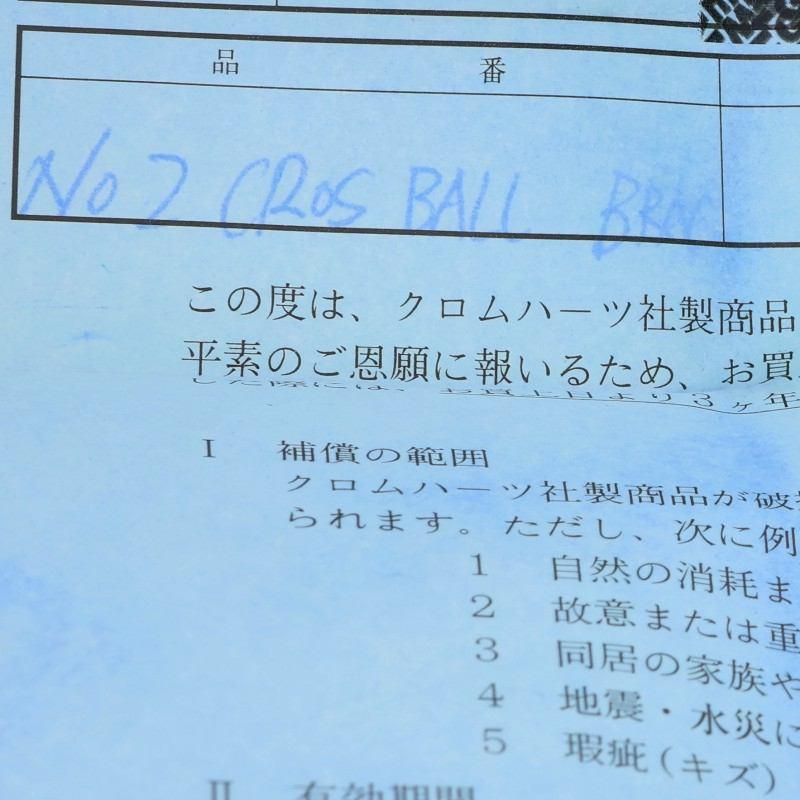 品番
No 2 CROS BALL
この度は、クロムハーツ社製商品
平素のご恩願に報いるため、お買
した際には、お買上日より3ヶ年
I 補償の範囲
クロムハーツ社製商品が破
られます。ただし、次に例
1 自然の消耗ま
2 故意または重
3 同居の家族や
4 地震・水災に
5 瑕疵(キズ)
II 有効期間